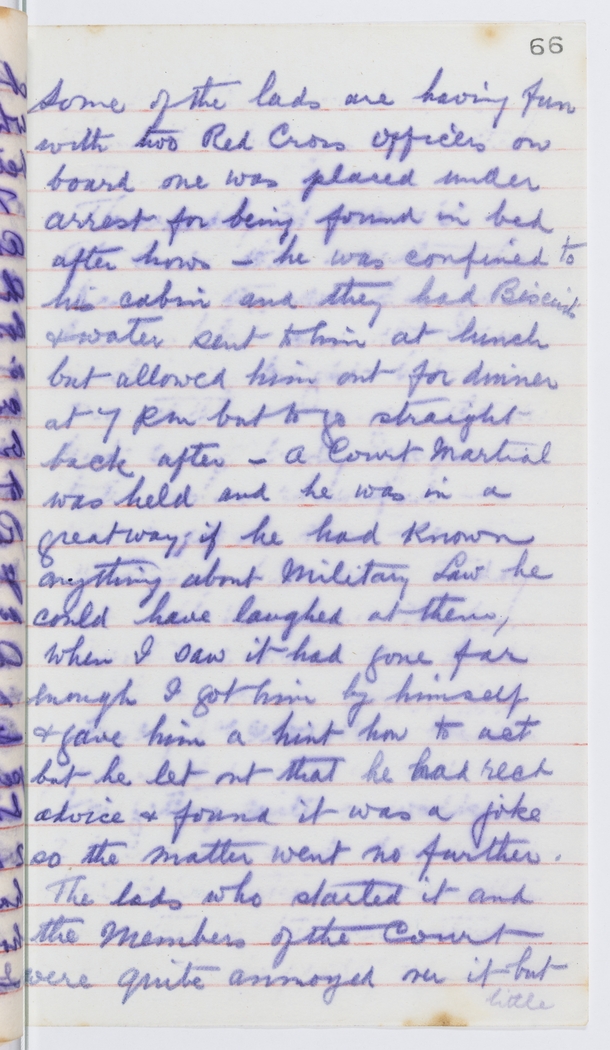 66
Some of the lads are having fun
with two Red Cross officers on
board one was placed under
arrest for being found in bed
after hours - he was confined to
his cabin and they had Biscuits
& water sent to him at lunch
but allowed him out for dinner
at 7 P.m but to go straight
back after - A Court Martial
was held and he was in a
great way, if he had known
anything about Military Law he
could have laughed at them,
When I saw it had gone far
enough I got him by himself
& gave him a hint how to act
but he let out that he had recd
advice & found it was a joke
so the matter went no further.
The lads who started it and
the Members of the Court
were quite annoyed over it but
little